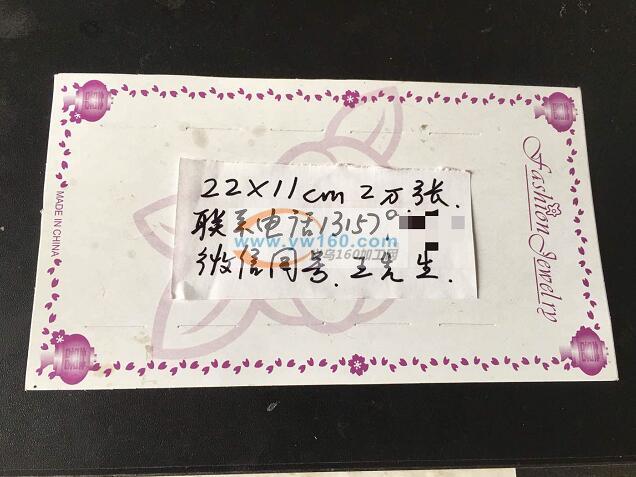 22×11cm 2万张.
联系电话13157
微信同号.王先生.
www.yw160.com
义乌160加工网
MADE IN CHINA
Fashion Jewelry